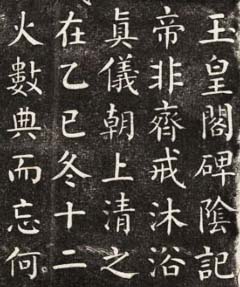 玉皇閣碑陰記
帝非齊戒沐浴
眞儀朝上清之
在乙巳冬十二
火數典而忘何